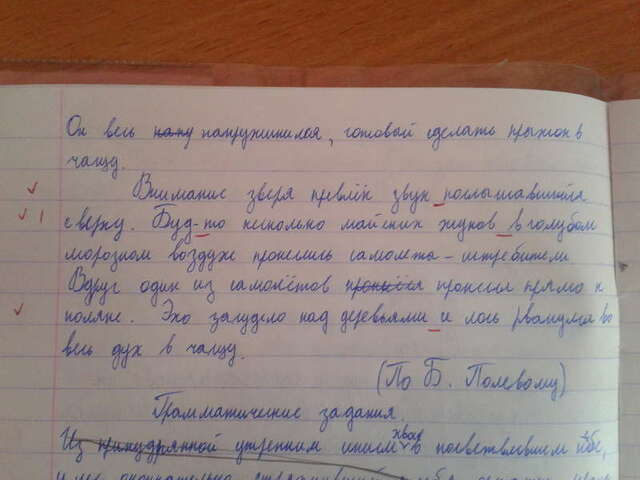 Он весь напружинился, готовый сделать прыжок в
чащу.
Внимание зверя превлёк звук послышавшийся
сверху. Буд-то несколько майских жуков в голубом
морозном воздухе пронеслись самолеты - истребители
Вдруг один из самолётов пронёсся прямо к
поляне. Эхо загудело над деревьями и лось рванулся во
весь дух в чащу.
(По Б. Полевому)
Грамматические задания.
Из утренним инеем в посветлевшем небе,